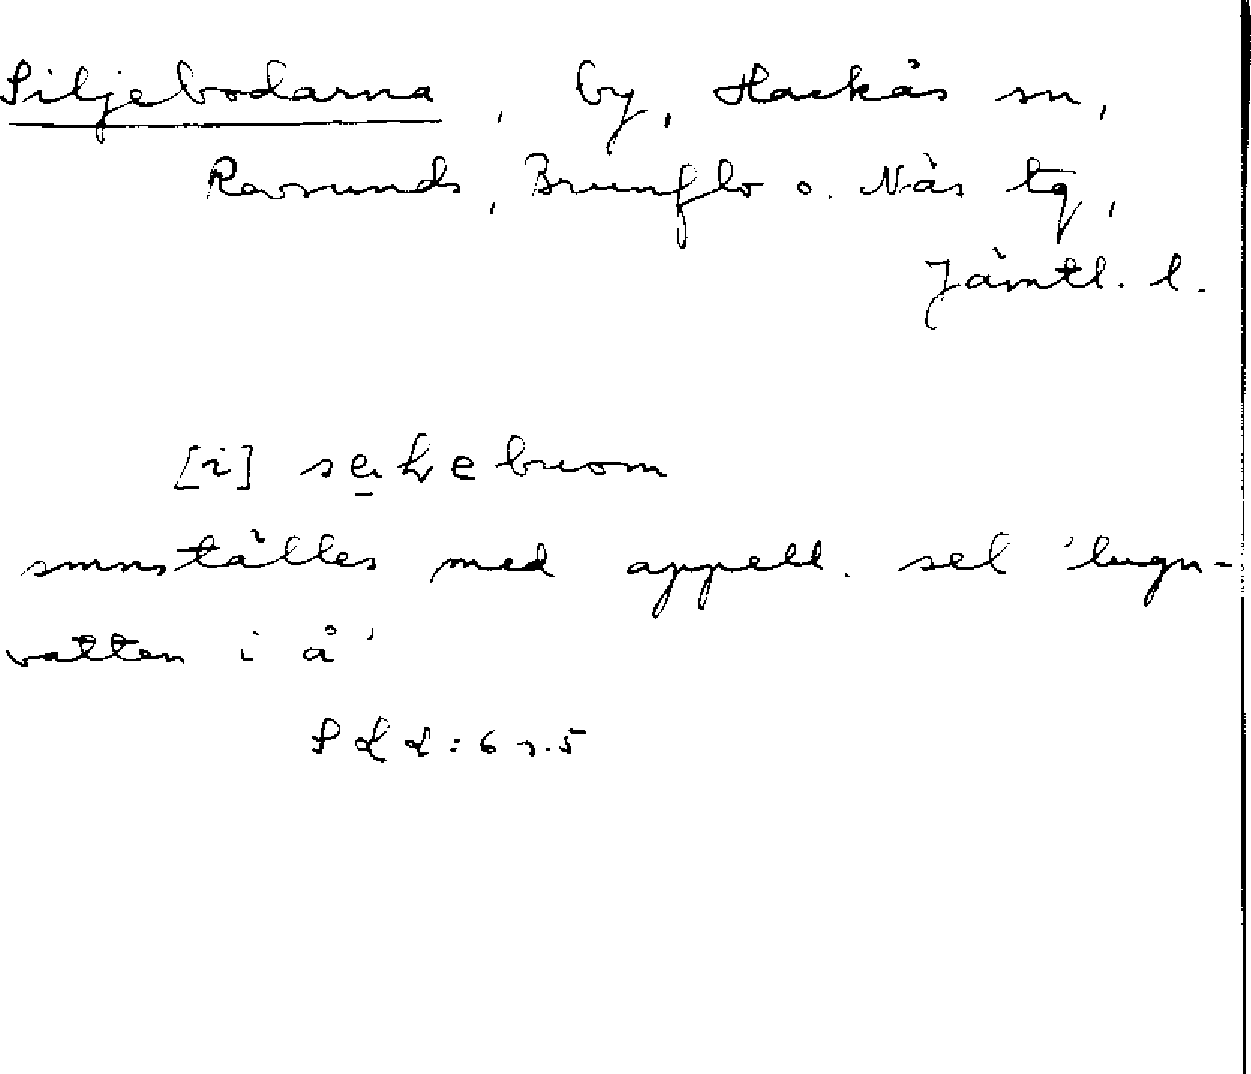 Siljebodarna, by, Hackås sn,
Revsunds, Brunflo o. Näs tg,
Jämtl. l.
[i]
smnställes med appell. sel 'lugn-
vatten i å'